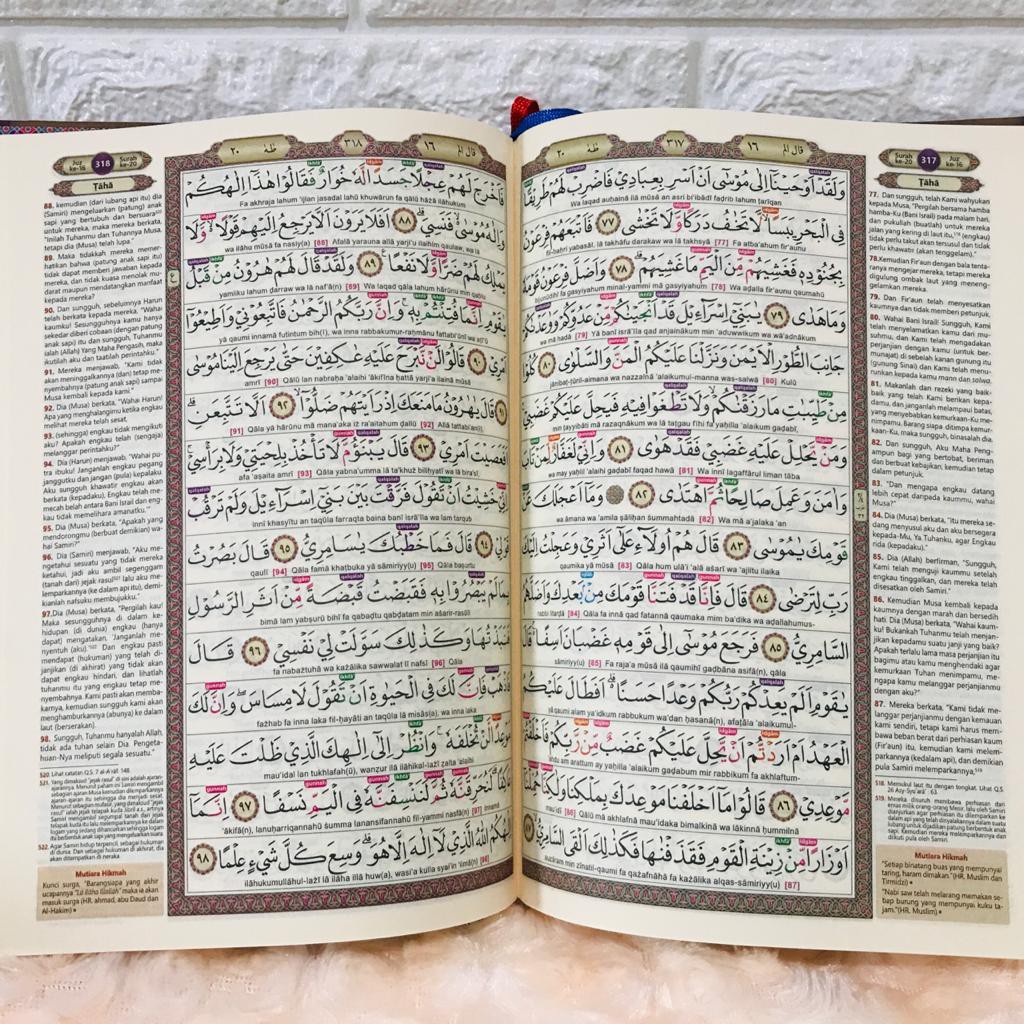 Surah ke-20 317 Juz ke-16
Ṭāhā
قال الم ١٦ ٣١٧ طٰهٰ ٢٠
وَلَقَدْ اَوْحَيْنَآ اِلٰى مُوْسٰٓى اَنْ اَسْرِ بِعِبَادِيْ فَاضْرِبْ لَهُمْ طَرِيْقًا
Wa laqad auḥainā ilā mūsā an asri bi'ibādī faḍrib lahum ṭarīqan
فِى الْبَحْرِ يَبَسًاۙ لَّا تَخٰفُ دَرَكًا وَّلَا تَخْشٰى ٧٧ فَاَتْبَعَهُمْ فِرْعَوْنُ
fil-baḥri yabasāl. lā takhāfu darakaw wa lā takhsyā [77] Fa atba'ahum fir'aunu
بِجُنُوْدِهٖ فَغَشِيَهُمْ مِّنَ الْيَمِّ مَا غَشِيَهُمْ ٧٨ وَاَضَلَّ فِرْعَوْنُ قَوْمَهٗ
bijunūdihī fa gasyiyahum minal-yammi mā gasyiyahum [78] Wa aḍalla fir'aunu qaumahū
وَمَا هَدٰى ٧٩ يٰبَنِيْٓ اِسْرَاۤءِيْلَ قَدْ اَنْجَيْنٰكُمْ مِّنْ عَدُوِّكُمْ وَوٰعَدْنٰكُمْ
wa mā hadā [79] Yā banī isrā'īla qad anjainākum min 'aduwwikum wa wā'adnākum
جَانِبَ الطُّوْرِ الْاَيْمَنَ وَنَزَّلْنَا عَلَيْكُمُ الْمَنَّ وَالسَّلْوٰى ٨٠ كُلُوْا
jānibaṭ-ṭūril-aimana wa nazzalnā 'alaikumul-manna was-salwā [80] Kulū
مِنْ طَيِّبٰتِ مَا رَزَقْنٰكُمْۙ وَلَا تَطْغَوْا فِيْهِ فَيَحِلَّ عَلَيْكُمْ غَضَبِيْ
min ṭayyibāti mā razaqnākum wa lā taṭgau fīhi fa yaḥilla 'alaikum gaḍabī,
وَمَنْ يَّحْلِلْ عَلَيْهِ غَضَبِيْ فَقَدْ هَوٰى ٨١ وَاِنِّيْ لَغَفَّارٌ لِّمَنْ تَابَ
wa may yaḥlil 'alaihi gaḍabī faqad hawā [81] Wa innī lagaffārul liman tāba
وَاٰمَنَ وَعَمِلَ صَالِحًا ثُمَّ اهْتَدٰى ٨٢ وَمَآ اَعْجَلَكَ عَنْ
wa āmana wa 'amila ṣāliḥan ṡummahtadā [82] Wa mā a'jalaka 'an
قَوْمِكَ يٰمُوْسٰى ٨٣ قَالَ هُمْ اُولَاۤءِ عَلٰٓى اَثَرِيْ وَعَجِلْتُ اِلَيْكَ
qaumika yā mūsā [83] Qāla hum ulā'i 'alā aṡarī wa 'ajiltu ilaika
رَبِّ لِتَرْضٰى ٨٤ قَالَ فَاِنَّا قَدْ فَتَنَّا قَوْمَكَ مِنْۢ بَعْدِكَ وَاَضَلَّهُمُ
rabbi litarḍā [84] Qāla fa innā qad fatannā qaumaka mim ba'dika wa aḍallahumus-
السَّامِرِيُّ ٨٥ فَرَجَعَ مُوْسٰٓى اِلٰى قَوْمِهٖ غَضْبَانَ اَسِفًا قَالَ
sāmiriyy(u) [85] Fa raja'a mūsā ilā qaumihī gaḍbāna asifā(n), qāla
يٰقَوْمِ اَلَمْ يَعِدْكُمْ رَبُّكُمْ وَعْدًا حَسَنًا اَفَطَالَ عَلَيْكُمُ
yā qaumi alam ya'idkum rabbukum wa'dan ḥasanā(n), afaṭāla 'alaikumul-
الْعَهْدُ اَمْ اَرَدْتُّمْ اَنْ يَّحِلَّ عَلَيْكُمْ غَضَبٌ مِّنْ رَّبِّكُمْ فَاَخْلَفْتُمْ
'ahdu am arattum ay yaḥilla 'alaikum gaḍabum mir rabbikum fa akhlaftum-
مَّوْعِدِيْ ٨٦ قَالُوْا مَآ اَخْلَفْنَا مَوْعِدَكَ بِمَلْكِنَا وَلٰكِنَّا حُمِّلْنَآ
[86] Qālū mā akhlafnā mau'idaka bimalkinā wa lākinnā ḥummilnā
اَوْزَارًا مِّنْ زِيْنَةِ الْقَوْمِ فَقَذَفْنٰهَا فَكَذٰلِكَ اَلْقَى السَّامِرِيُّ ٨٧
auzāram min zīnatil-qaumi fa qażafnāhā fa każālika alqas-sāmiriyy(u) [87]
77. Dan sungguh, telah Kami wahyukan kepada Musa, "Pergilah bersama hamba-hamba-Ku (Bani Israil) pada malam hari, dan pukullah (buatlah) untuk mereka jalan yang kering di laut itu, (engkau) tidak perlu takut akan tersusul dan tidak perlu khawatir (akan tenggelam)."
78. Kemudian Fir'aun dengan bala tentaranya mengejar mereka, tetapi mereka digulung ombak laut yang menenggelamkan mereka.
79. Dan Fir'aun telah menyesatkan kaumnya dan tidak memberi petunjuk.
80. Wahai Bani Israil! Sungguh, Kami telah menyelamatkan kamu dari musuhmu, dan Kami telah mengadakan perjanjian dengan kamu (untuk bermunajat) di sebelah kanan gunung itu (gunung Sinai) dan Kami telah menurunkan kepada kamu mann dan salwa.
81. Makanlah dari rezeki yang baik-baik, yang telah Kami berikan kepadamu, dan janganlah melampaui batas, yang menyebabkan kemurkaan-Ku menimpamu. Barang siapa ditimpa kemurkaan-Ku, maka sungguh, binasalah dia.
82. Dan sungguh, Aku Maha Pengampun bagi yang bertobat, beriman dan berbuat kebajikan, kemudian tetap dalam petunjuk.
83. "Dan mengapa engkau datang lebih cepat daripada kaummu, wahai Musa?"
84. Dia (Musa) berkata, "Itu mereka sedang menyusul aku dan aku bersegera kepada-Mu, Ya Tuhanku, agar Engkau rida (kepadaku)."
85. Dia (Allah) berfirman, "Sungguh, Kami telah menguji kaummu setelah engkau tinggalkan, dan mereka telah disesatkan oleh Samiri."
86. Kemudian Musa kembali kepada kaumnya dengan marah dan bersedih hati. Dia (Musa) berkata, "Wahai kaumku! Bukankah Tuhanmu telah menjanjikan kepadamu suatu janji yang baik? Apakah terlalu lama masa perjanjian itu bagimu atau kamu menghendaki agar kemurkaan Tuhan menimpamu, mengapa kamu melanggar perjanjianmu dengan aku?"
87. Mereka berkata, "Kami tidak melanggar perjanjianmu dengan kemauan kami sendiri, tetapi kami harus membawa beban berat dari perhiasan kaum (Fir'aun) itu, kemudian kami melemparkannya (kedalam api), dan demikian pula Samiri melemparkannya,
518. Memukul laut itu dengan tongkat. Lihat Q.S. 26 Asy-Syu'ara': 63
Mutiara Hikmah
"Setiap binatang buas yang mempunyai taring, haram dimakan." (HR. Muslim dan Tirmidzi)
"Nabi saw telah melarang memakan setiap burung yang mempunyai kuku tajam."(HR. Muslim)
Juz ke-16 318 Surah ke-20
Ṭāhā
قال الم ١٦ ٣١٨ طٰهٰ ٢٠
فَاَخْرَجَ لَهُمْ عِجْلًا جَسَدًا لَّهٗ خُوَارٌ فَقَالُوْا هٰذَآ اِلٰهُكُمْ
Fa akhraja lahum 'ijlan jasadal lahū khuwārun fa qālū hāżā ilāhukum
وَاِلٰهُ مُوْسٰى فَنَسِيَ ٨٨ اَفَلَا يَرَوْنَ اَلَّا يَرْجِعُ اِلَيْهِمْ قَوْلًا وَّلَا
wa ilāhu mūsā fa nasiy(a) [88] Afalā yarauna allā yarji'u ilaihim qaulaw, wa lā
يَمْلِكُ لَهُمْ ضَرًّا وَّلَا نَفْعًا ٨٩ وَلَقَدْ قَالَ لَهُمْ هٰرُوْنُ مِنْ قَبْلُ
yamliku lahum ḍarraw wa lā naf'ā(n) [89] Wa laqad qāla lahum hārūnu min qablu
يٰقَوْمِ اِنَّمَا فُتِنْتُمْ بِهٖ وَاِنَّ رَبَّكُمُ الرَّحْمٰنُ فَاتَّبِعُوْنِيْ وَاَطِيْعُوْٓا
yā qaumi innamā futintum bih(ī), wa inna rabbakumur-raḥmānu fattabi'ūnī wa aṭī'ū
اَمْرِيْ ٩٠ قَالُوْا لَنْ نَّبْرَحَ عَلَيْهِ عٰكِفِيْنَ حَتّٰى يَرْجِعَ اِلَيْنَا مُوْسٰى
amrī [90] Qālū lan nabraḥa 'alaihi 'ākifīna ḥattā yarji'a ilainā mūsā
٩١ قَالَ يٰهٰرُوْنُ مَا مَنَعَكَ اِذْ رَاَيْتَهُمْ ضَلُّوْٓا ٩٢ اَلَّا تَتَّبِعَنِ
[91] Qāla yā hārūnu mā mana'aka iż ra'aitahum ḍallū [92] Allā tattabi'an(i),
اَفَعَصَيْتَ اَمْرِيْ ٩٣ قَالَ يَبْنَؤُمَّ لَا تَأْخُذْ بِلِحْيَتِيْ وَلَا بِرَأْسِيْ
afa 'aṣaita amrī [93] Qāla yabna'umma lā ta'khuż biliḥyatī wa lā bira'sī,
اِنِّيْ خَشِيْتُ اَنْ تَقُوْلَ فَرَّقْتَ بَيْنَ بَنِيْٓ اِسْرَاۤءِيْلَ وَلَمْ تَرْقُبْ
innī khasyītu an taqūla farraqta baina banī isrā'īla wa lam tarqub
قَوْلِيْ ٩٤ قَالَ فَمَا خَطْبُكَ يٰسَامِرِيُّ ٩٥ قَالَ بَصُرْتُ
qaulī [94] Qāla famā khaṭbuka yā sāmiriyy(u) [95] Qāla baṣurtu
بِمَا لَمْ يَبْصُرُوْا بِهٖ فَقَبَضْتُ قَبْضَةً مِّنْ اَثَرِ الرَّسُوْلِ
bimā lam yabṣurū bihī fa qabaḍtu qabḍatam min aṡarir-rasūli
فَنَبَذْتُهَا وَكَذٰلِكَ سَوَّلَتْ لِيْ نَفْسِيْ ٩٦ قَالَ
fa nabażtuhā wa każālika sawwalat lī nafsī [96] Qāla
فَاذْهَبْ فَاِنَّ لَكَ فِى الْحَيٰوةِ اَنْ تَقُوْلَ لَا مِسَاسَ وَاِنَّ لَكَ
fażhab fa inna laka fil-ḥayāti an taqūla lā misās(a), wa inna laka
مَوْعِدًا لَّنْ تُخْلَفَهٗ وَانْظُرْ اِلٰٓى اِلٰهِكَ الَّذِيْ ظَلْتَ عَلَيْهِ
mau'idal lan tukhlafah(ū), wanẓur ilā ilāhikal-lażī ẓalta 'alaihi
عَاكِفًا لَنُحَرِّقَنَّهٗ ثُمَّ لَنَنْسِفَنَّهٗ فِى الْيَمِّ نَسْفًا ٩٧ اِنَّمَآ
'ākifā(n), lanuḥarriqannahū ṡumma lanansifannahū fil-yammi nasfā(n) [97] Innamā
اِلٰهُكُمُ اللّٰهُ الَّذِيْ لَآ اِلٰهَ اِلَّا هُوَ وَسِعَ كُلَّ شَيْءٍ عِلْمًا ٩٨
ilāhukumullāhul-lażī lā ilāha illā huw(a), wasi'a kulla syai'in 'ilmā(n) [98]
88. kemudian (dari lubang api itu) dia (Samiri) mengeluarkan (patung) anak sapi yang bertubuh dan bersuara untuk mereka, maka mereka berkata, "Inilah Tuhanmu dan Tuhannya Musa, tetapi dia (Musa) telah lupa."
89. Maka tidakkah mereka memerhatikan bahwa (patung anak sapi itu) tidak dapat memberi jawaban kepada mereka, dan tidak kuasa menolak mudarat maupun mendatangkan manfaat kepada mereka?
90. Dan sungguh, sebelumnya Harun telah berkata kepada mereka, "Wahai kaumku! Sesungguhnya kamu hanya sekedar diberi cobaan (dengan patung anak sapi) itu dan sungguh, Tuhanmu ialah (Allah) Yang Maha Pengasih, maka ikutilah aku dan taatilah perintahku."
91. Mereka menjawab, "Kami tidak akan meninggalkannya (dan) tetap menyembahnya (patung anak sapi) sampai Musa kembali kepada kami."
92. Dia (Musa) berkata, "Wahai Harun! Apa yang menghalangimu ketika engkau melihat mereka telah sesat,
93. (sehingga) engkau tidak mengikuti aku? Apakah engkau telah (sengaja) melanggar perintahku?"
94. Dia (Harun) menjawab, "Wahai putra ibuku! Janganlah engkau pegang janggutku dan jangan (pula) kepalaku. Aku sungguh khawatir engkau akan berkata (kepadaku), 'Engkau telah memecah belah antara Bani Israil dan engkau tidak memelihara amanatku.'"
95. Dia (Musa) berkata, "Apakah yang mendorongmu (berbuat demikian) wahai Samiri?"
96. Dia (Samiri) menjawab, "Aku mengetahui sesuatu yang tidak mereka ketahui, jadi aku ambil segenggam (tanah dari) jejak rasul lalu aku melemparkannya (ke dalam api itu), demikianlah nafsuku membujukku."
97. Dia (Musa) berkata, "Pergilah kau! Maka sesungguhnya di dalam kehidupan (di dunia) engkau (hanya) dapat mengatakan, 'Janganlah menyentuh (aku).' Dan engkau pasti mendapat (hukuman) yang telah dijanjikan (di akhirat) yang tidak akan dapat engkau hindari, dan lihatlah tuhanmu itu yang engkau tetap menyembahnya. Kami pasti akan membakarnya, kemudian sungguh kami akan menghamburkannya (abunya) ke dalam laut (berserakan).
98. Sungguh, Tuhanmu hanyalah Allah, tidak ada tuhan selain Dia. Pengetahuan-Nya meliputi segala sesuatu."
520. Lihat catatan Q.S. 7 al-A'raf: 148
522. Agar Samiri hidup terpencil, sebagai hukuman di dunia. Dan sebagai hukuman di akhirat, dia akan ditempatkan di neraka
Mutiara Hikmah
Kunci surga, "Barangsiapa yang akhir ucapannya "Lā ilāha illallāh" maka ia akan masuk surga (HR. ahmad, abu Daud dan Al-Hakim)